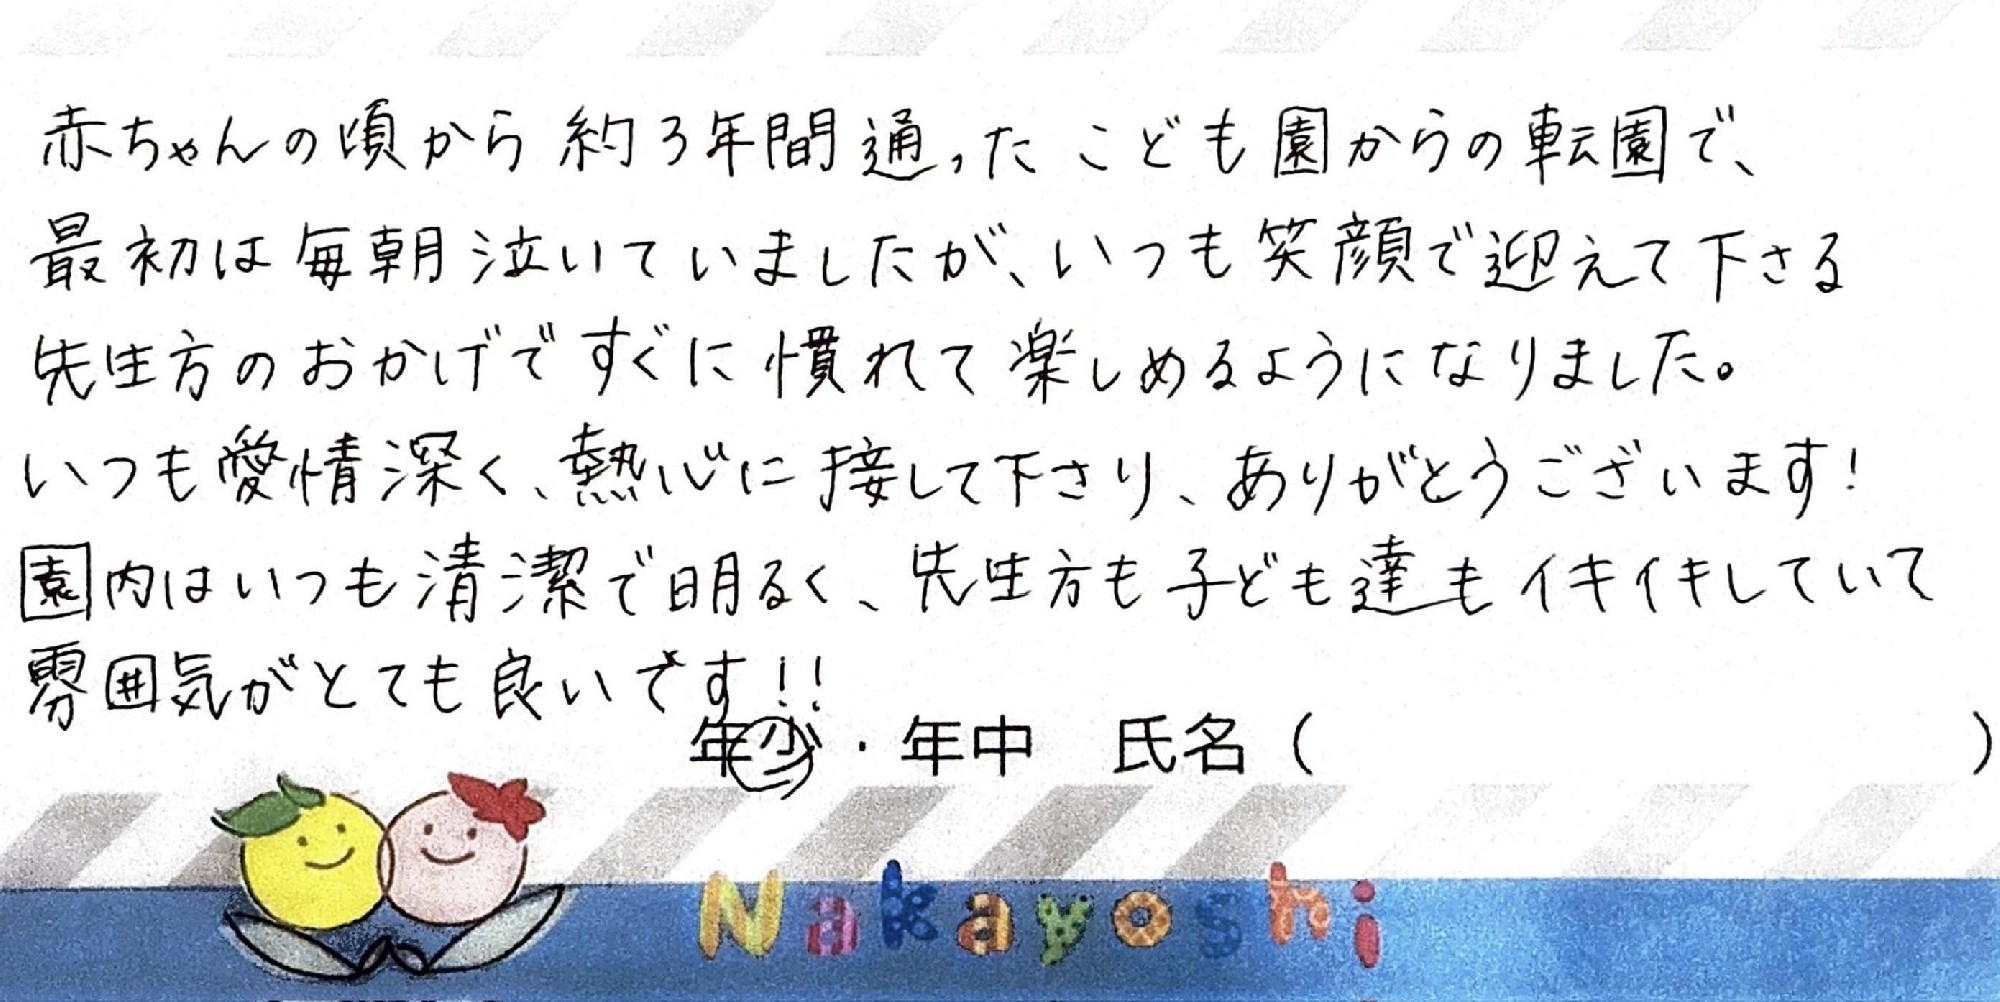 赤ちゃんの頃から約3年間通ったこども園からの転園で、
最初は毎朝泣いていましたが、いつも笑顔で迎えて下さる
先生方のおかげですぐに慣れて楽しめるようになりました。
いつも愛情深く、熱心に接して下さり、ありがとうございます!
園内はいつも清潔で明るく、先生方も子ども達もイキイキしていて
雰囲気がとても良いです!!
年少・年中 氏名( )
Nakayoshi